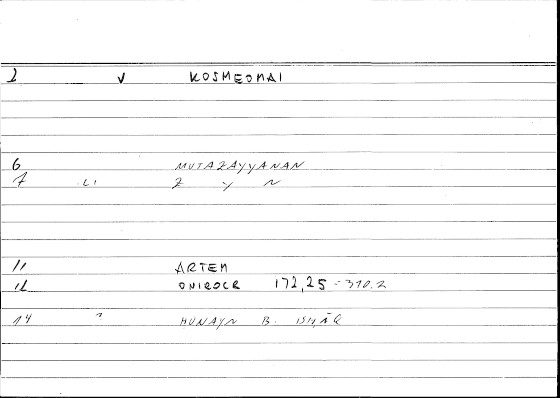 1 V KOSMEOMAI
6 MUTAZAYYANAN
7 LI Z Y N
11 ARTEM
12 ONIROCR 172,25 = 310.2
14 HUNAYN B. ISḤĀQ